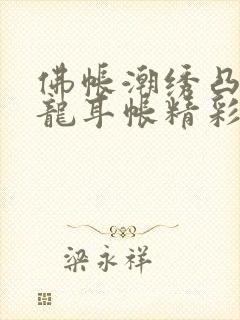 佛帐潮绣凸
龍耳帐精彩
梁永祥